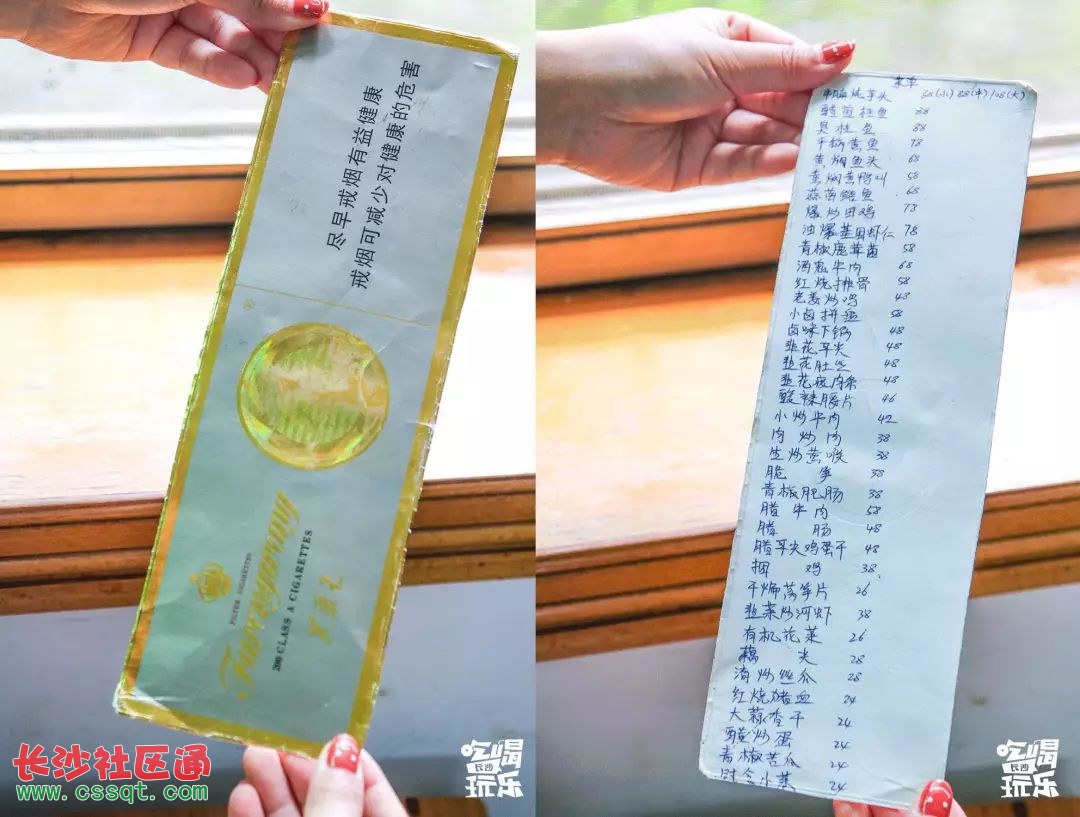 尽早戒烟有益健康
戒烟可减少对健康的危害
®
Furongwang
FILTER CIGARETTES
200 CLASS A CIGARETTES
芙蓉王
长沙社区通
www.cssqt.com
吃喝
长沙
玩乐
菜单
牛腩烧芋头 68(小) 88(中) 108(大)
88
臭桂鱼 88
干锅黄鱼 78
黄焖鱼头 68
黄焖黄鸭叫 58
68
爆炒田鸡 78
油爆基围虾仁 78
青椒鹿茸菌 58
牛肉 68
红烧排骨 58
老姜炒鸡 48
小卤拼盘 58
卤味下锅 48
韭花耳尖 48
韭花肚丝 48
韭花夜肉条 48
酸辣腰片 46
小炒牛肉 42
肉炒肉 38
生炒黄喉 38
脆笋 38
青椒肥肠 38
腊牛肉 58
腊肠 48
腊耳尖鸡蛋干 48
捆鸡 38
干煸荡笋片 26
韭菜炒河虾 38
有机花菜 26
藕尖 28
清炒丝瓜 28
红烧猪血 24
大蒜香干 24
酸炒蛋 24
青椒苦瓜 24
时令小菜 24
吃喝
长沙
玩乐